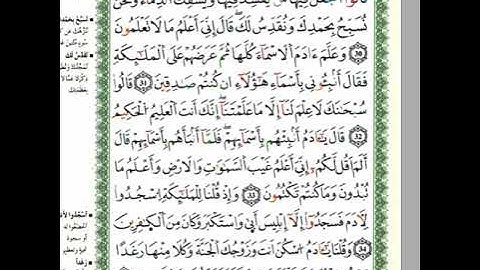 نُسَبِّحُ بِحَمْدِكَ وَنُقَدِّسُ لَكَ قَالَ إِنِّي أَعْلَمُ مَا لَا تَعْلَمُونَ
30 وَعَلَّمَ ءَادَمَ اَلَاسْمَآءَ كُلَّهَا ثُمَّ عَرَضَهُمْ عَلَى اَلْمَلَٰٓئِكَةِ
فَقَالَ أَنۢبِـُٔونِي بِأَسْمَآءِ هَٰٓؤُلَآءِ ان كُنتُمْ صَٰدِقِينَ 31 قَالُوا
سُبْحَٰنَكَ لَا عِلْمَ لَنَآ إِلَّا مَا عَلَّمْتَنَآ إِنَّكَ أَنتَ اَلْعَلِيمُ اُلْحَكِيمُ
32 قَالَ يَٰٓـَٔادَمُ أَنۢبِئْهُم بِأَسْمَآئِهِمْ فَلَمَّآ أَنۢبَأَهُم بِأَسْمَآئِهِمْ قَالَ
أَلَمَ اَقُل لَّكُمُۥٓ إِنِّيَ أَعْلَمُ غَيْبَ اَلسَّمَٰوَٰتِ وَالَارْضِ وَأَعْلَمُ مَا
تُبْدُونَ وَمَا كُنتُمْ تَكْتُمُونَ 33 وَإِذْ قُلْنَا لِلْمَلَٰٓئِكَةِ اِسْجُدُوا
لِأدَمَ فَسَجَدُوٓا إِلَّآ إِبْلِيسَ أَبَىٰ وَاسْتَكْبَرَ وَكَانَ مِنَ اَلْكَٰفِرِينَ
34 وَقُلْنَا يَٰٓـَٔادَمُ اُسْكُنَ اَنتَ وَزَوْجُكَ اَلْجَنَّةَ وَكُلَا مِنْهَا رَغَدًا